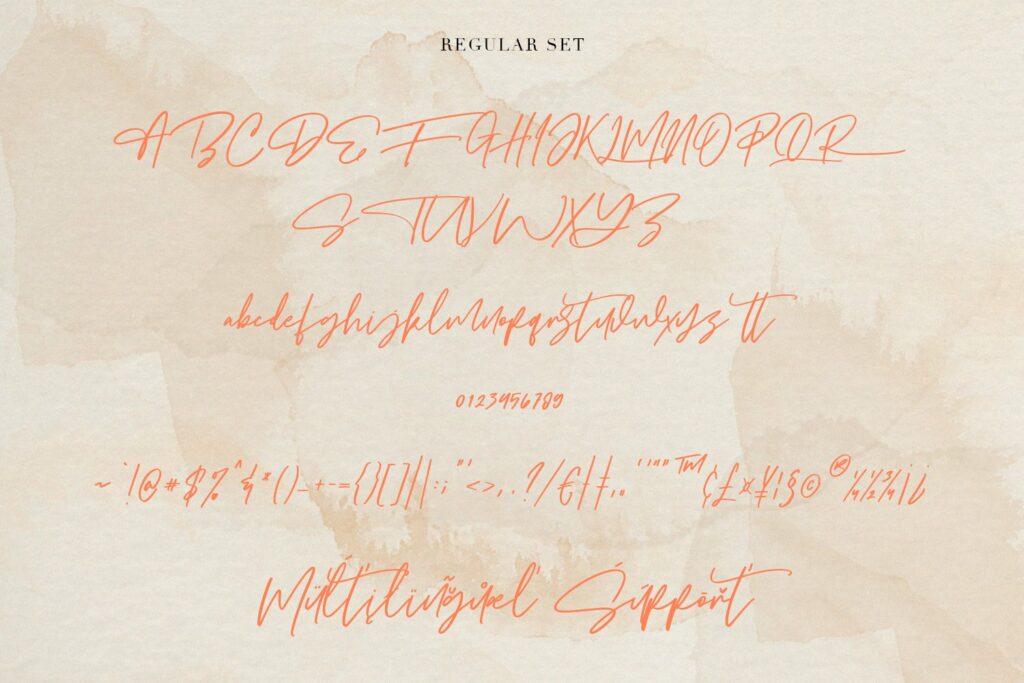 REGULAR SET
ABCDEFGHIJKLMNOPQR
STUVWXYZ
abcdefghijklmnopqrstuvwxyz tt
0123456789
~`!@#$%^&*()_+-={}[]|\:;"'<>,.?/€
™¢£¤¥¦§©®¼½¾¡¿